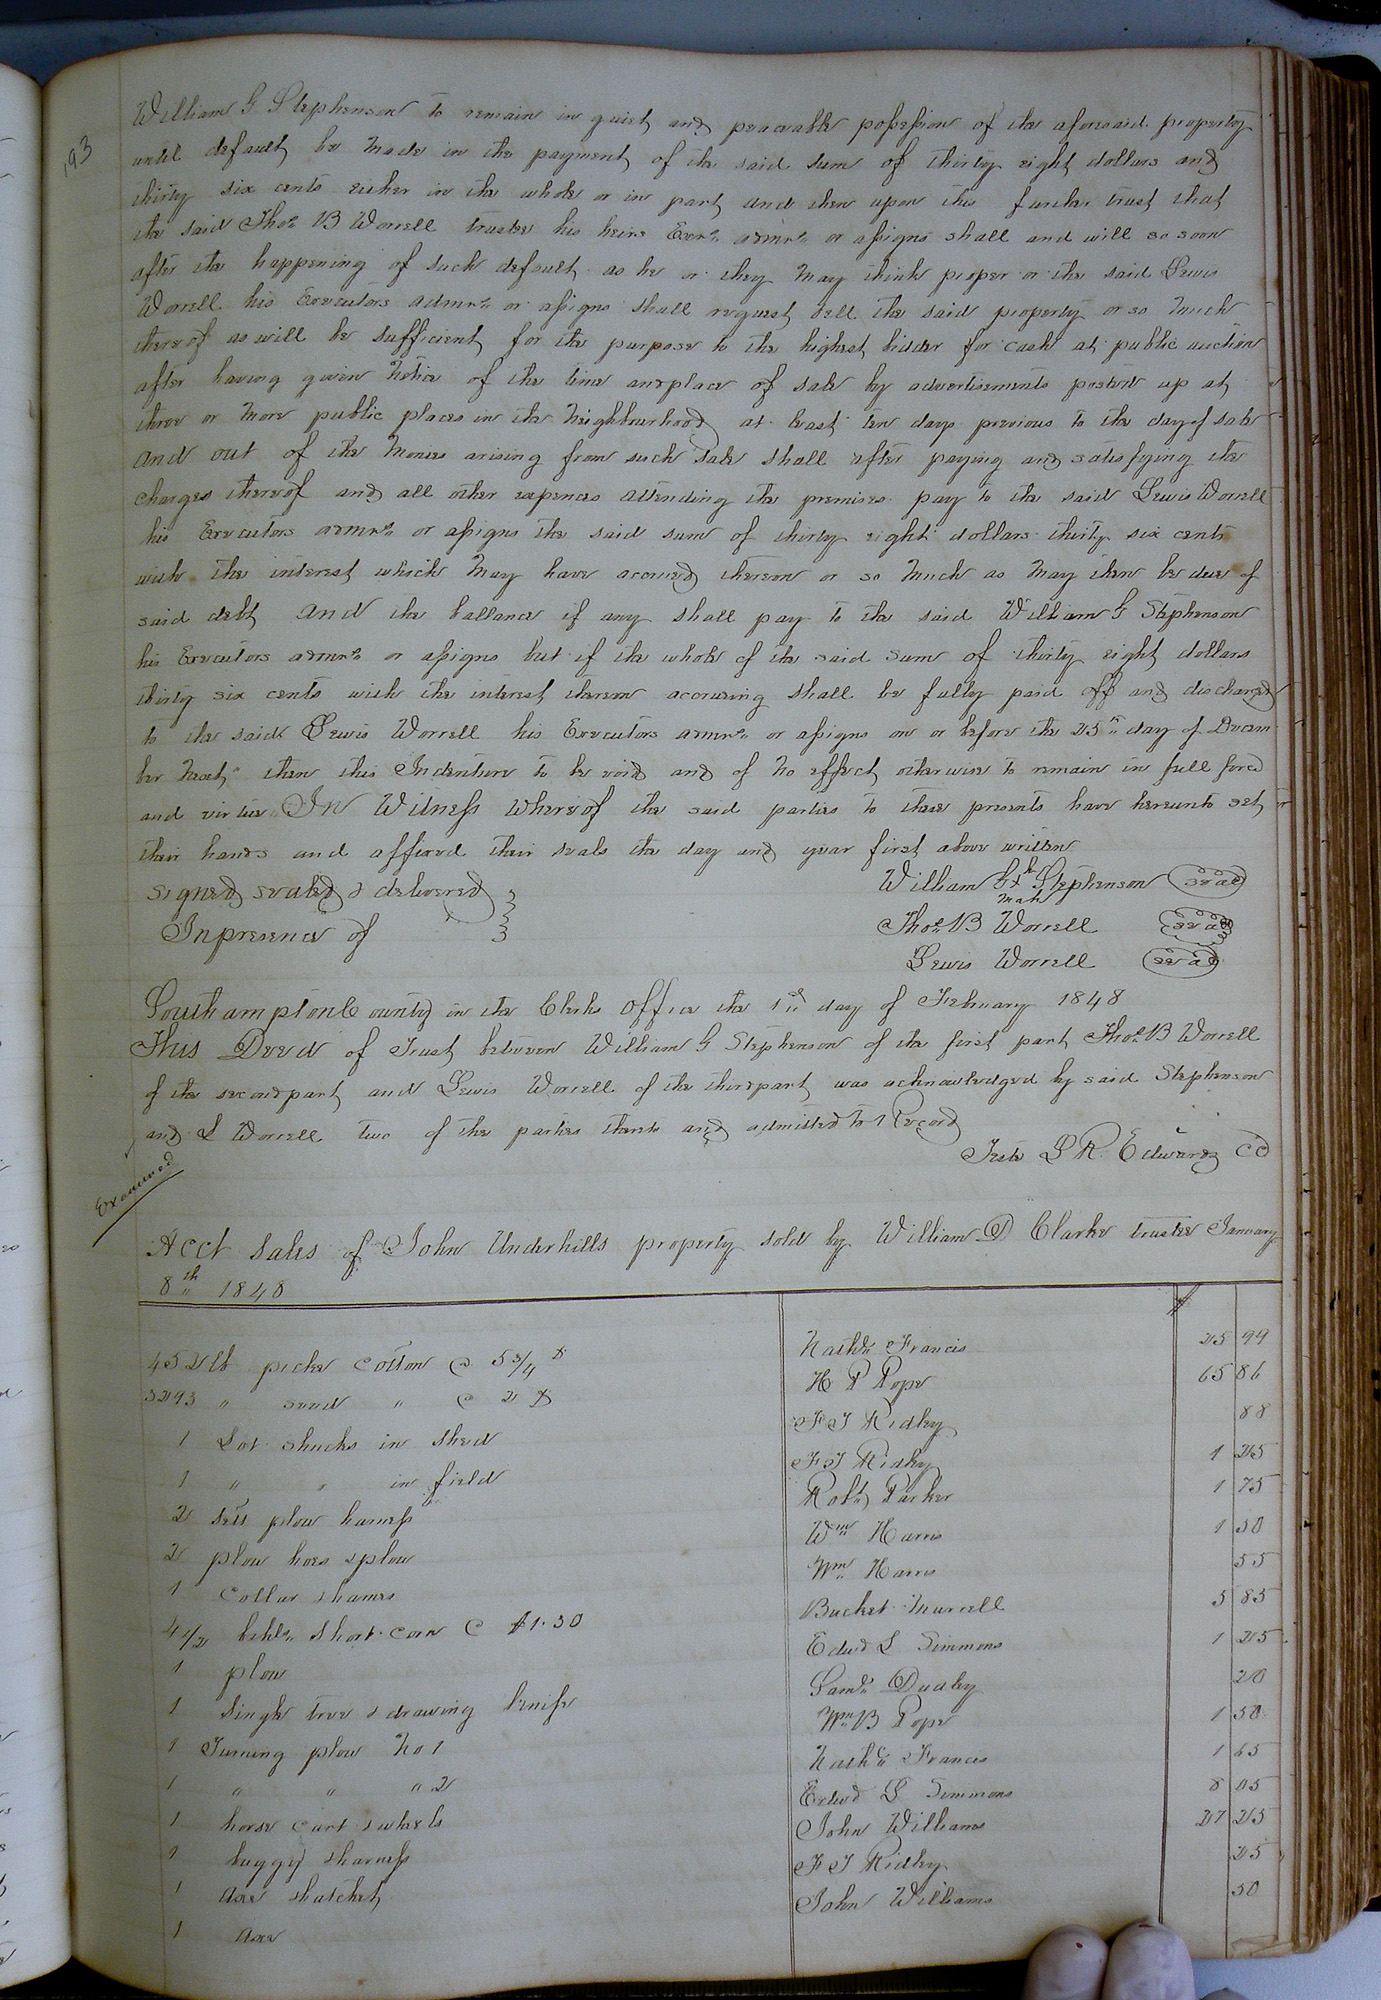 193
William G Stephenson to remain in quiet and peaceable possession of the aforesaid property
until default be made in the payment of the said sum of thirty eight dollars and
thirty six cents either in the whole or in part and then upon this further trust that
the said Thos. B Worrell trustee his heirs Exrs. admrs. or assigns shall and will so soon
after the happening of such default as he or they may think proper or the said Lewis
Worrell his Executors admrs. or assigns shall request sell the said property or so much
thereof as will be sufficient for the purpose to the highest bidder for cash at public auction
after having given notice of the time and place of sale by advertisements posted up at
three or more public places in the neighbourhood at least ten days previous to the day of sale
and out of the monies arising from such sale shall after paying and satisfying the
charges thereof and all other expences attending the premises pay to the said Lewis Worrell
his Executors admrs. or assigns the said sum of thirty eight dollars thirty six cents
with the interest which may have accrued thereon or so much as may then be due of
said debt and the ballance if any shall pay to the said William G Stephenson
his Executors admrs. or assigns but if the whole of the said sum of thirty eight dollars
thirty six cents with the interest thereon accruing shall be fully paid off and discharged
to the said Lewis Worrell his Executors admrs. or assigns on or before the 25th day of Decem
ber next, then this Indenture to be void and of no effect otherwise to remain in full force
and virtue. In Witness whereof the said parties to these presents have hereunto set
their hands and affixed their seals the day and year first above written
signed sealed & delivered
In presence of
William G X Stephenson seal
mark
Thos. B Worrell seal
Lewis Worrell seal
Southampton County in the Clerks office the 1st day of February 1848
This Deed of Trust between William G Stephenson of the first part Thos. B Worrell
of the second part and Lewis Worrell of the third part was acknowledged by said Stephenson
and L Worrell two of the parties thereto and admitted to Record
Teste L R. Edwards CC
Examined
Acct Sales of John Underhills property sold by William D Clarke trustee January
8th 1848
452 lb picke cotton @ 5 3/4 Nathl. Francis 25 99
3293 " seed " @ 2 H P Pope 65 86
1 Lot shucks in shed F T Ridley 88
1 " " in field F T Ridley 1 25
2 sett plow harness Robt. Parker 1 75
2 plow hoes & plow Wm. Harris 1 50
1 Collar & hames Wm. Harris 55
4 1/2 bbls. short corn @ $1.30 Murrell 5 85
1 plow Edwd L Simmons 1 25
1 single tree & drawing knife Saml. Dudley 20
1 Turning plow No 1 Wm. B Pope 1 50
1 " " " 2 Nathl. Francis 1 65
1 horse cart & wheels Edwd L Simmons 8 25
1 buggy & harness John Williams 27 25
1 axe & hatchet F T Ridley 25
1 axe John Williams 50